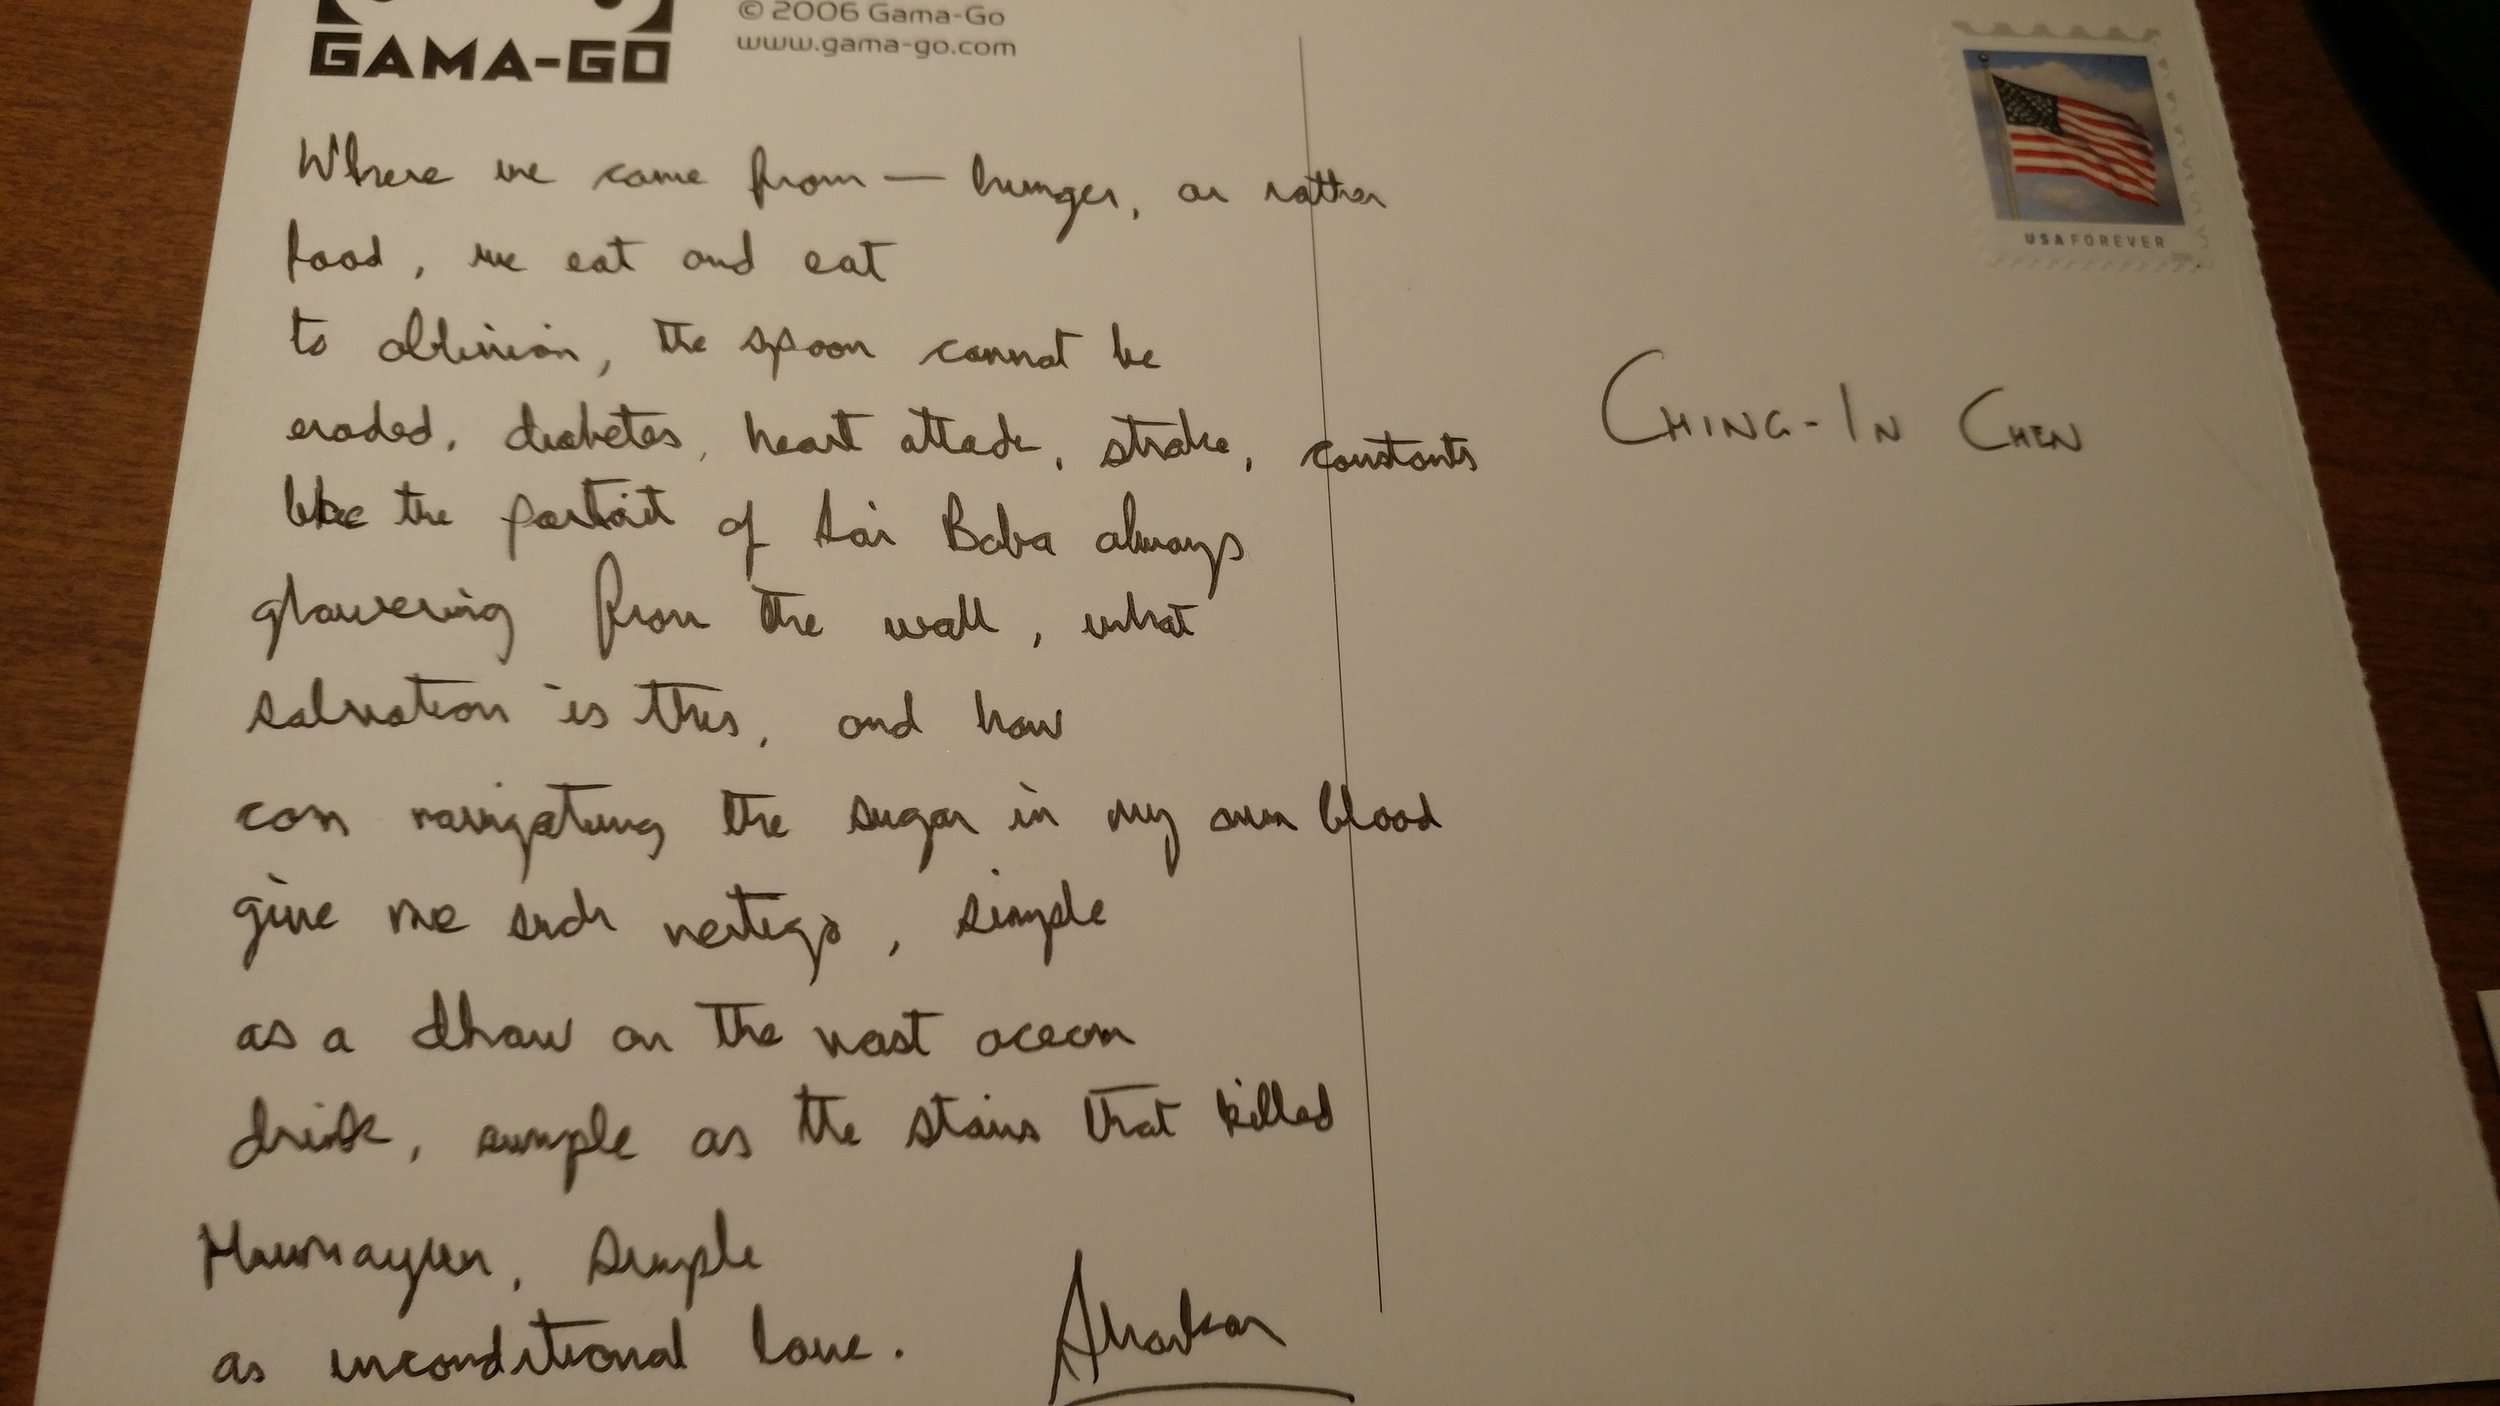 GAMA-GO
© 2006 Gama-Go
www.gama-go.com
Where we came from — hunger, or rather
food, we eat and eat
to oblivion, the spoon cannot be
eroded, diabetes, heart attack, stroke, constants
like the portrait of Sai Baba always
glowering from the wall, what
salvation is this, and how
can navigating the sugar in my own blood
give me such vertigo, simple
as a dhow on the vast ocean
drink, simple as the stairs that killed
Humayun, simple
as unconditional love.
USA FOREVER
CHING-IN CHEN